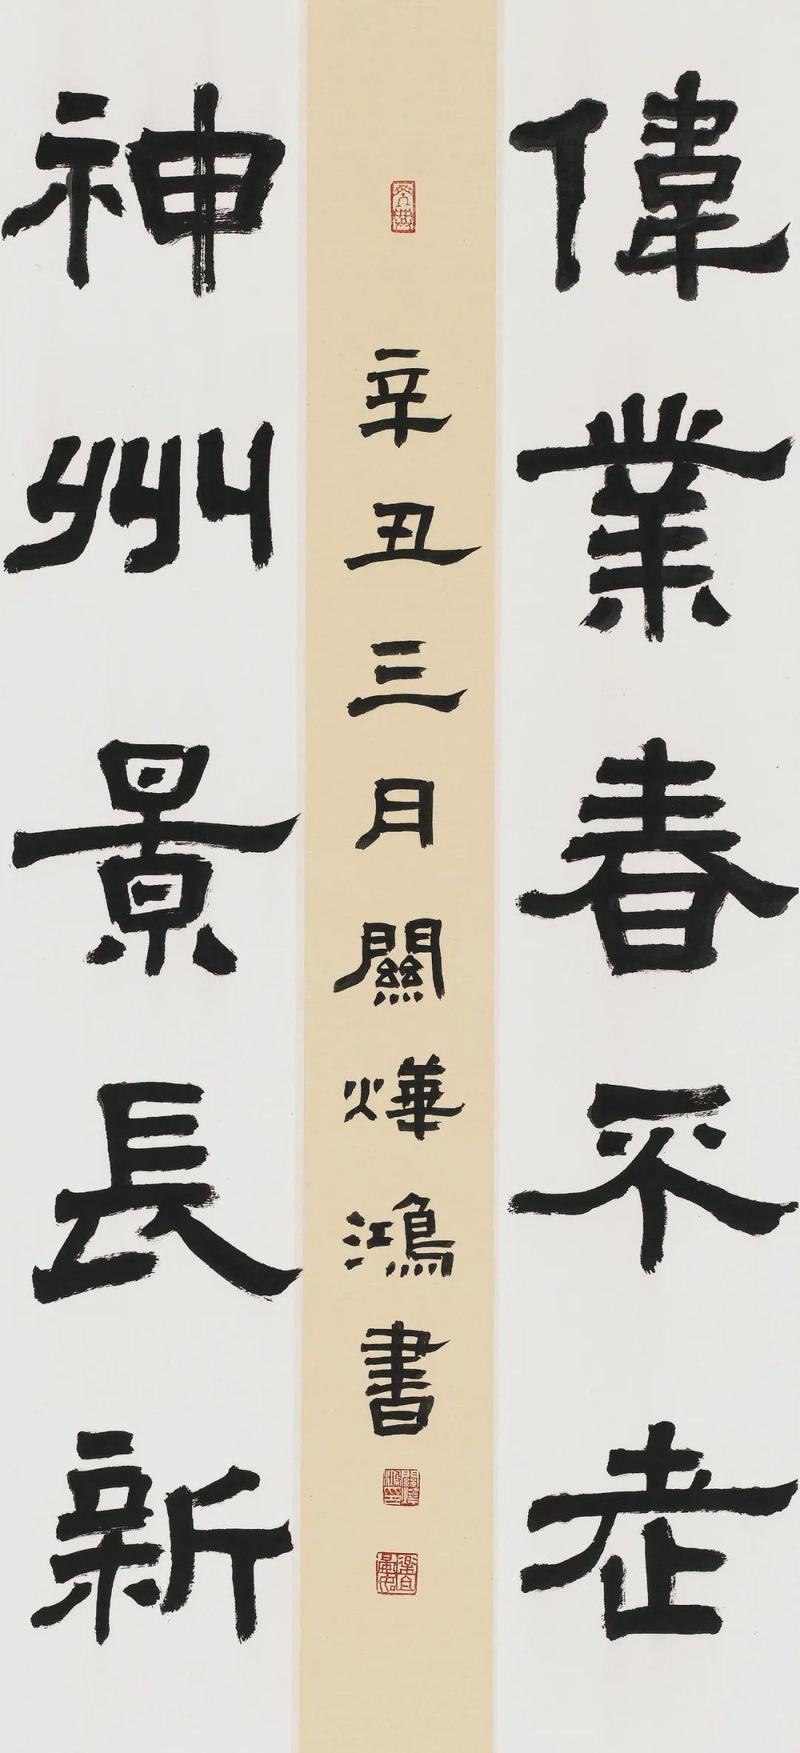 偉業春不老
神州景長新
辛丑三月關燁鴻書